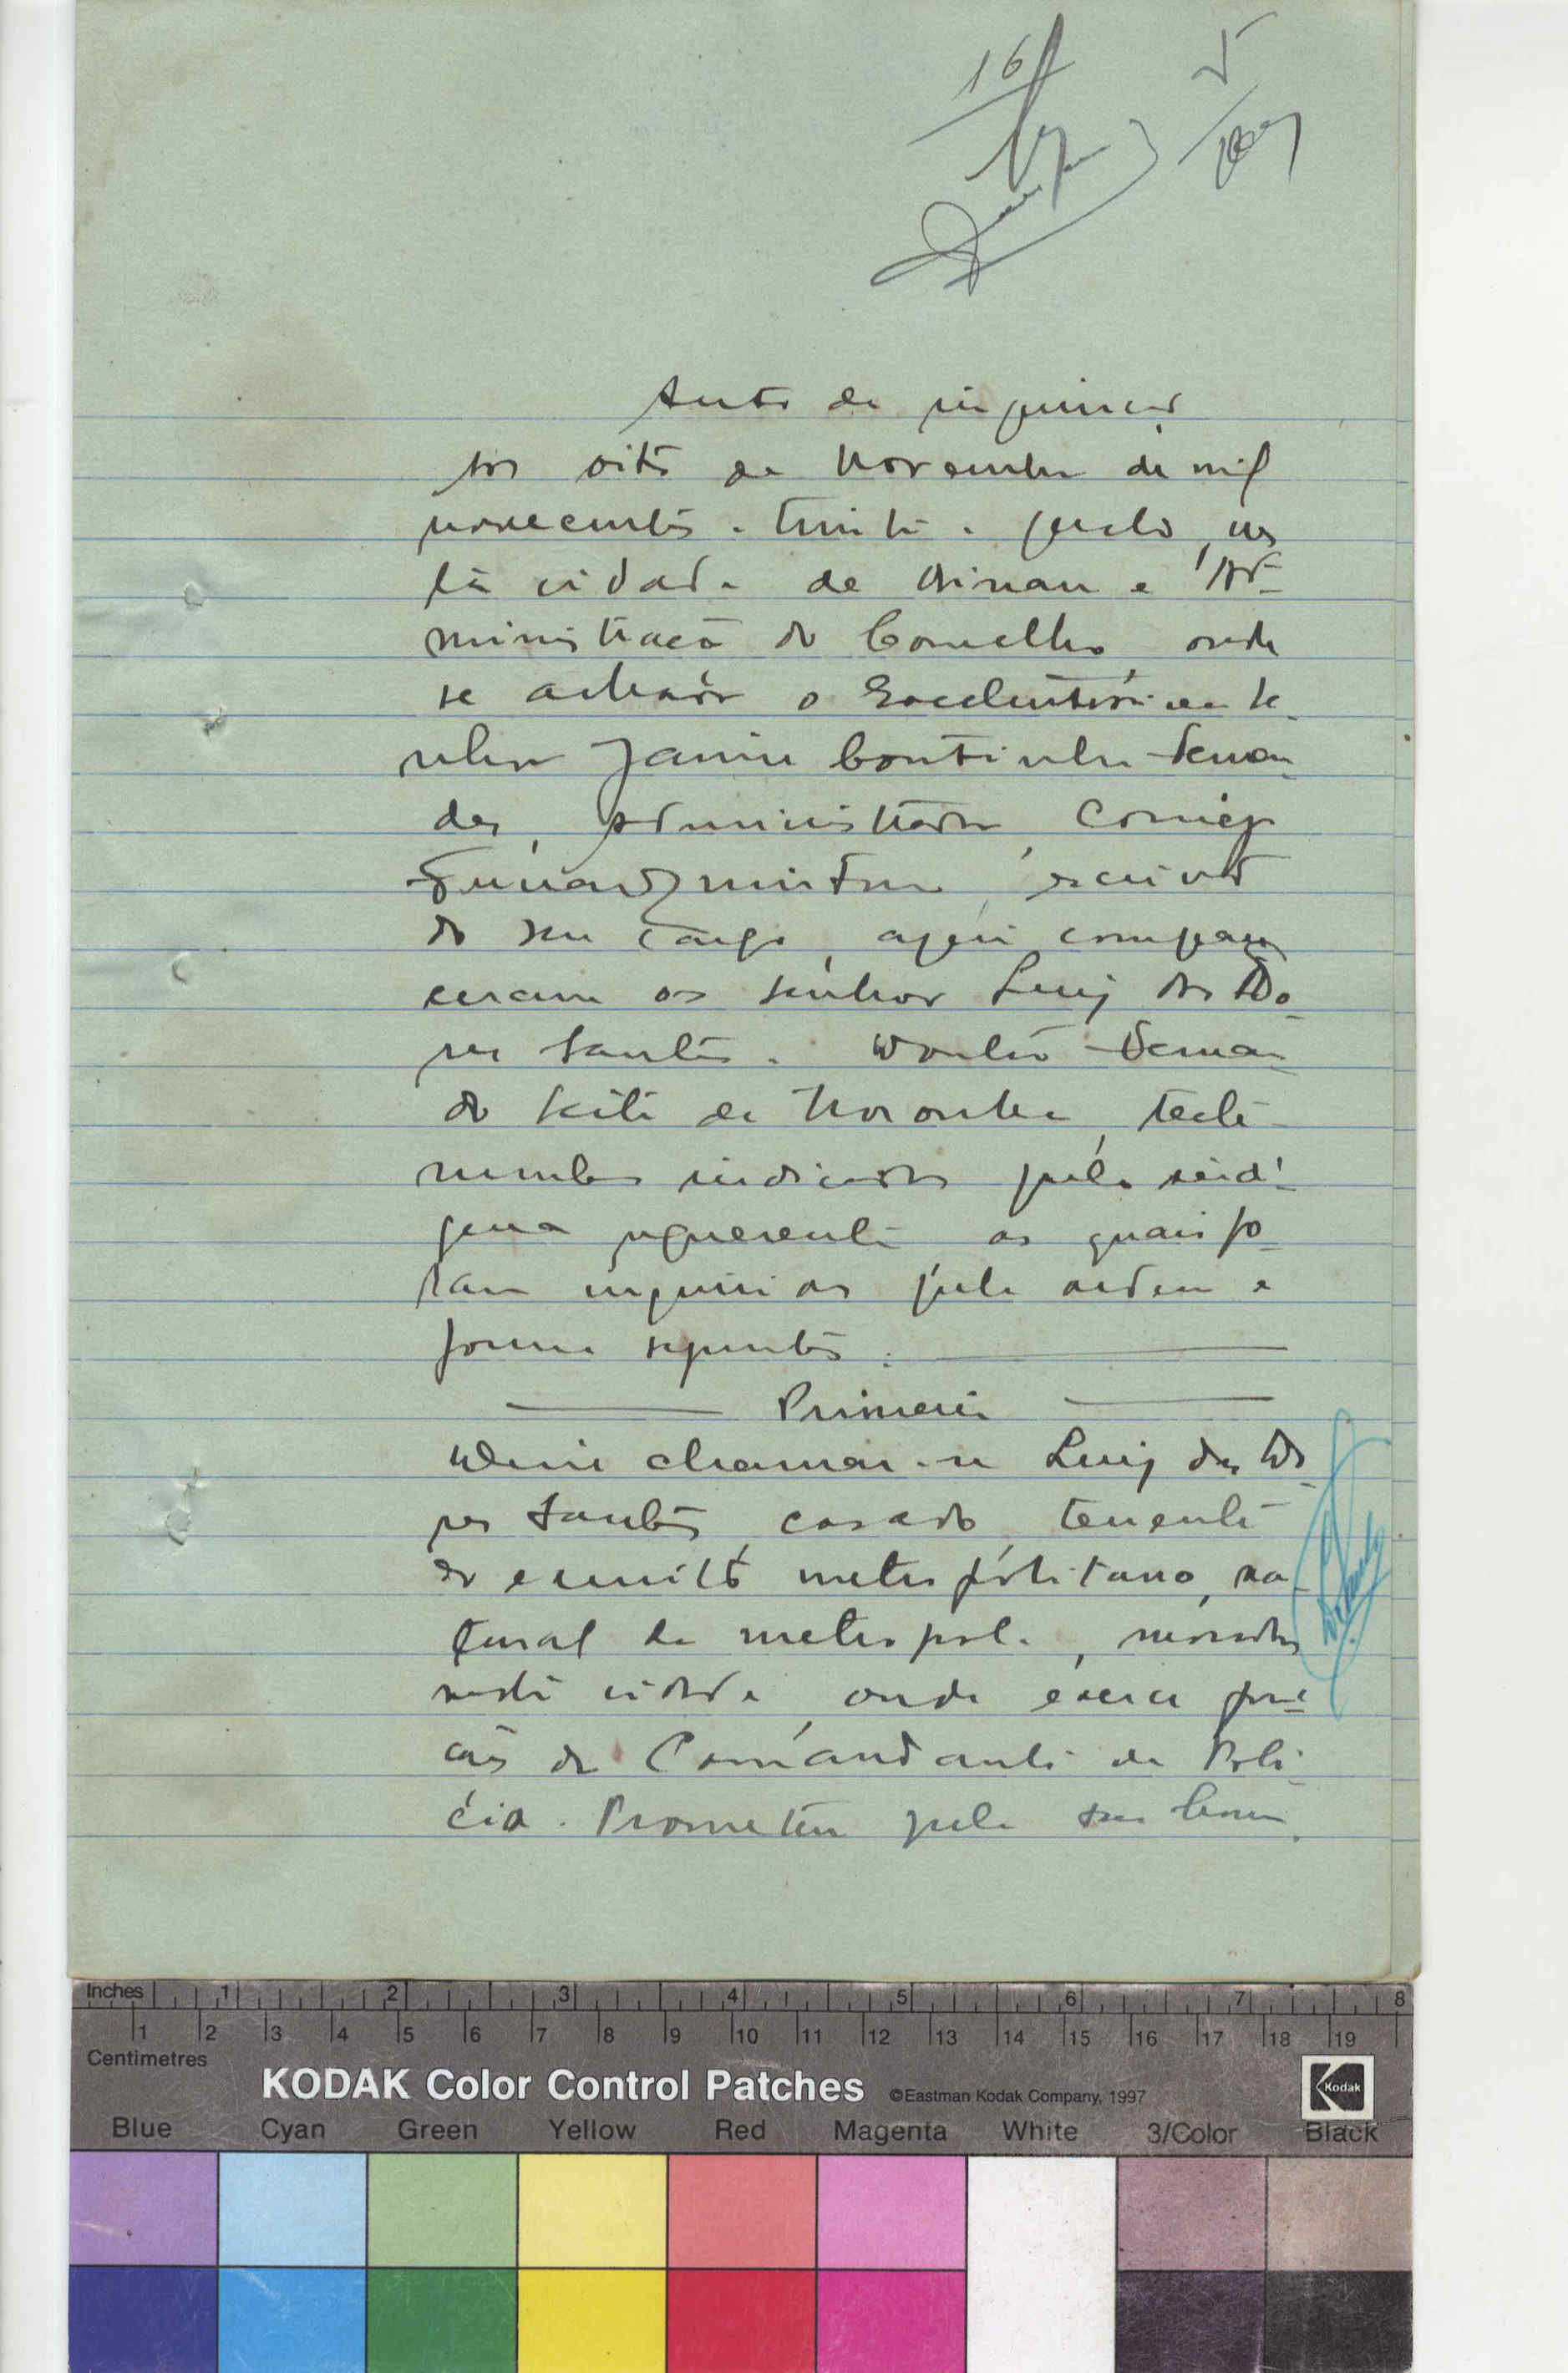 16
5
Auto de inquirição
Aos oito de Novembro de mil
novecentos e trinta e quatro, nes
ta cidade de Bissau e Ad-
ministração do Concelho, onde
se achava o Excelentissimo Se-
nhor Jaime Coutinho Fernan-
des, Administrador, comigo
escrivão
do seu cargo, aqui compare
ceram os senhor Luiz dos Do-
res Santos e Fernan-
do Leite de Noronha, teste-
munhas indicadas pelo indi-
gena requerente as quais fo-
ram inquiridas pela ordem e
forma seguintes:
Primeira
Disse chamar-se Luiz das Do-
res Santos, casado, tenente
do exercito metropolitano, na-
tural da metropole, morador
nesta cidade, onde exerce fun-
ções de Comandante da Poli-
cia. Prometeu pela sua honra
Inches 1 2 3 4 5 6 7 8
1 2 3 4 5 6 7 8 9 10 11 12 13 14 15 16 17 18 19
Centimetres
KODAK Color Control Patches ©Eastman Kodak Company, 1997
Kodak
Blue Cyan Green Yellow Red Magenta White 3/Color Black